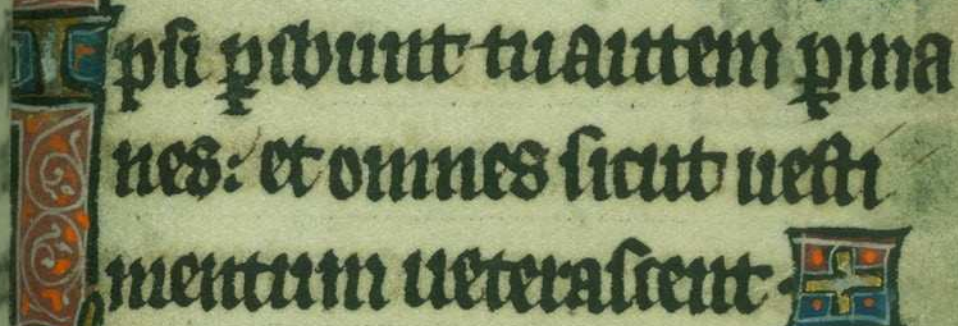 Ipsi ꝑibunt tu autem ꝑma
nes: et omnes sicut uesti
mentum ueterascent.